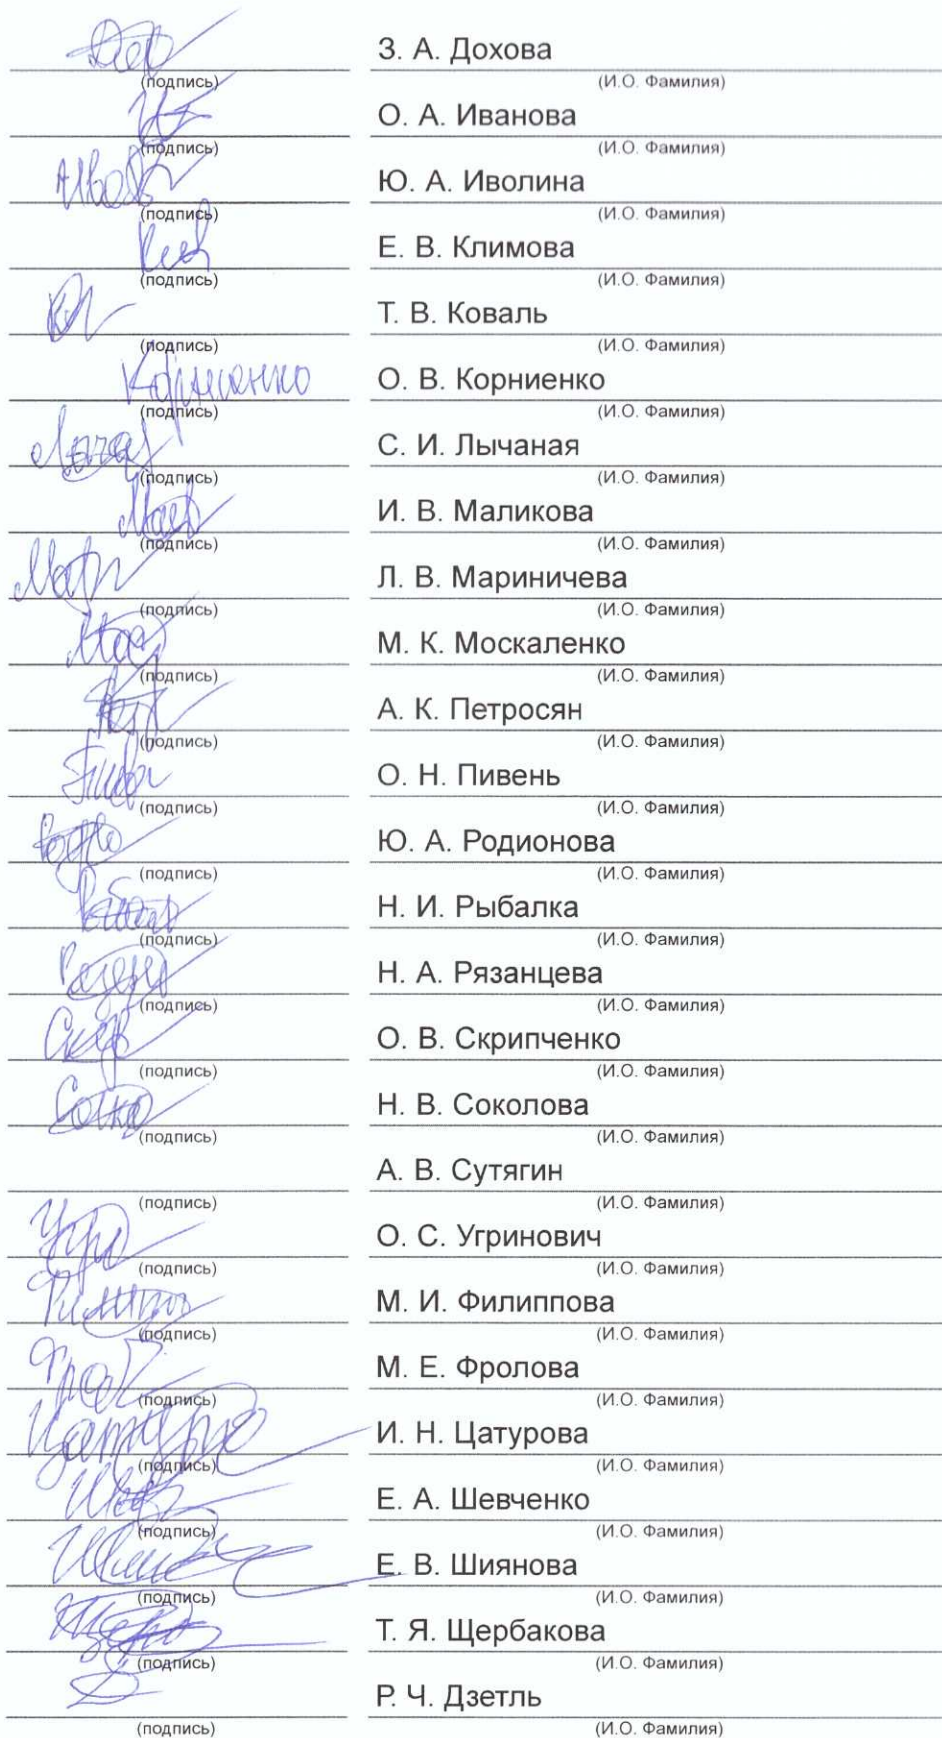 З. А. Дохова
(подпись) (И.О. Фамилия)
О. А. Иванова
(подпись) (И.О. Фамилия)
Ю. А. Иволина
(подпись) (И.О. Фамилия)
Е. В. Климова
(подпись) (И.О. Фамилия)
Т. В. Коваль
(подпись) (И.О. Фамилия)
Корниенко О. В. Корниенко
(подпись) (И.О. Фамилия)
С. И. Лычаная
(подпись) (И.О. Фамилия)
И. В. Маликова
(подпись) (И.О. Фамилия)
Л. В. Мариничева
(подпись) (И.О. Фамилия)
М. К. Москаленко
(подпись) (И.О. Фамилия)
А. К. Петросян
(подпись) (И.О. Фамилия)
О. Н. Пивень
(подпись) (И.О. Фамилия)
Ю. А. Родионова
(подпись) (И.О. Фамилия)
Н. И. Рыбалка
(подпись) (И.О. Фамилия)
Н. А. Рязанцева
(подпись) (И.О. Фамилия)
О. В. Скрипченко
(подпись) (И.О. Фамилия)
Н. В. Соколова
(подпись) (И.О. Фамилия)
А. В. Сутягин
(подпись) (И.О. Фамилия)
О. С. Угринович
(подпись) (И.О. Фамилия)
М. И. Филиппова
(подпись) (И.О. Фамилия)
М. Е. Фролова
(подпись) (И.О. Фамилия)
И. Н. Цатурова
(подпись) (И.О. Фамилия)
Е. А. Шевченко
(подпись) (И.О. Фамилия)
Е. В. Шиянова
(подпись) (И.О. Фамилия)
Т. Я. Щербакова
(подпись) (И.О. Фамилия)
Р. Ч. Дзетль
(подпись) (И.О. Фамилия)